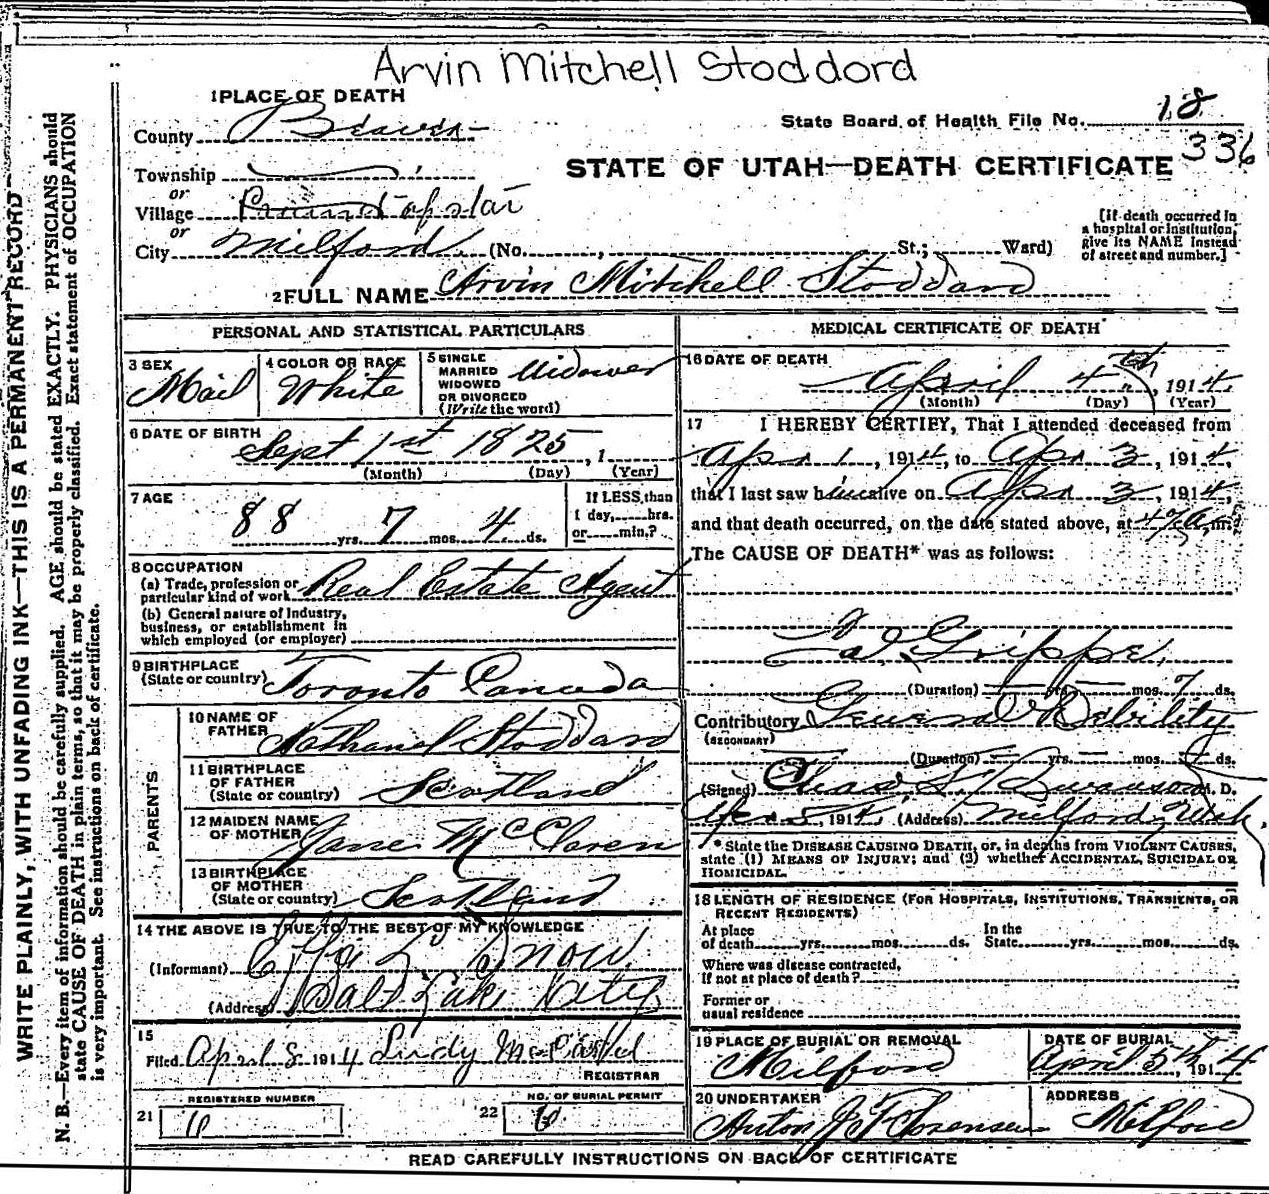 Arvin Mitchell Stoddord
1 PLACE OF DEATH
County Beaver
State Board of Health File No. 18
336
Township
STATE OF UTAH—DEATH CERTIFICATE
or
Village
or
City Milford (No. , St.; Ward)
[If death occurred in
a hospital or institution,
give its NAME instead
of street and number.]
2 FULL NAME Arvin Mitchell Stoddard
PERSONAL AND STATISTICAL PARTICULARS
3 SEX
Mail
4 COLOR OR RACE
White
5 SINGLE
MARRIED
WIDOWED
OR DIVORCED
(Write the word)
Widower
6 DATE OF BIRTH
Sept 1st 1825, 1
(Month) (Day) (Year)
7 AGE
88 yrs. 7 mos. 4 ds.
If LESS than
1 day, hrs.
or min.?
8 OCCUPATION
(a) Trade, profession or
particular kind of work Real Estate Agent
(b) General nature of Industry,
business, or establishment in
which employed (or employer)
9 BIRTHPLACE
(State or country) Toronto Canada
PARENTS
10 NAME OF
FATHER Nathanel Stoddard
11 BIRTHPLACE
OF FATHER
(State or country) Scotland
12 MAIDEN NAME
OF MOTHER Jane McClaren
13 BIRTHPLACE
OF MOTHER
(State or country) Scotland
14 THE ABOVE IS TRUE TO THE BEST OF MY KNOWLEDGE
(Informant) Effa L Snow
(Address) Salt Lake City
15
Filed April 8 1914
REGISTRAR
REGISTERED NUMBER
21
NO. OF BURIAL PERMIT
22
MEDICAL CERTIFICATE OF DEATH
16 DATE OF DEATH
April 4th, 1914
(Month) (Day) (Year)
17 I HEREBY CERTIFY, That I attended deceased from
Apr 1, 1914, to Apr 3, 1914,
that I last saw him alive on Apr 3, 1914,
and that death occurred, on the date stated above, at m.
The CAUSE OF DEATH* was as follows:
La Grippe
(Duration) yrs. mos. 7 ds.
Contributory General Debility
(SECONDARY)
(Duration) yrs. mos. ds.
(Signed) M. D.
191 (Address) Milford, Utah.
* State the DISEASE CAUSING DEATH, or, in deaths from VIOLENT CAUSES,
state (1) MEANS OF INJURY; and (2) whether ACCIDENTAL, SUICIDAL OR
HOMICIDAL.
18 LENGTH OF RESIDENCE (FOR HOSPITALS, INSTITUTIONS, TRANSIENTS, OR
RECENT RESIDENTS)
At place
of death yrs. mos. ds.
In the
State yrs. mos. ds.
Where was disease contracted,
If not at place of death?
Former or
usual residence
19 PLACE OF BURIAL OR REMOVAL
Milford
DATE OF BURIAL
April 5th, 1914
20 UNDERTAKER
Anton
ADDRESS
Milford
READ CAREFULLY INSTRUCTIONS ON BACK OF CERTIFICATE
WRITE PLAINLY, WITH UNFADING INK—THIS IS A PERMANENT RECORD
N. B.—Every item of information should be carefully supplied. AGE should be stated EXACTLY. PHYSICIANS should
state CAUSE OF DEATH in plain terms, so that it may be properly classified. Exact statement of OCCUPATION
is very important. See instructions on back of certificate.